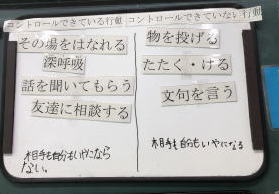 コントロールできている行動
その場をはなれる
深呼吸
話を聞いてもらう
友達に相談する
相手も自分もいやにならない。
コントロールできていない行動
物を投げる
たたく・ける
文句を言う
相手も自分もいやになる